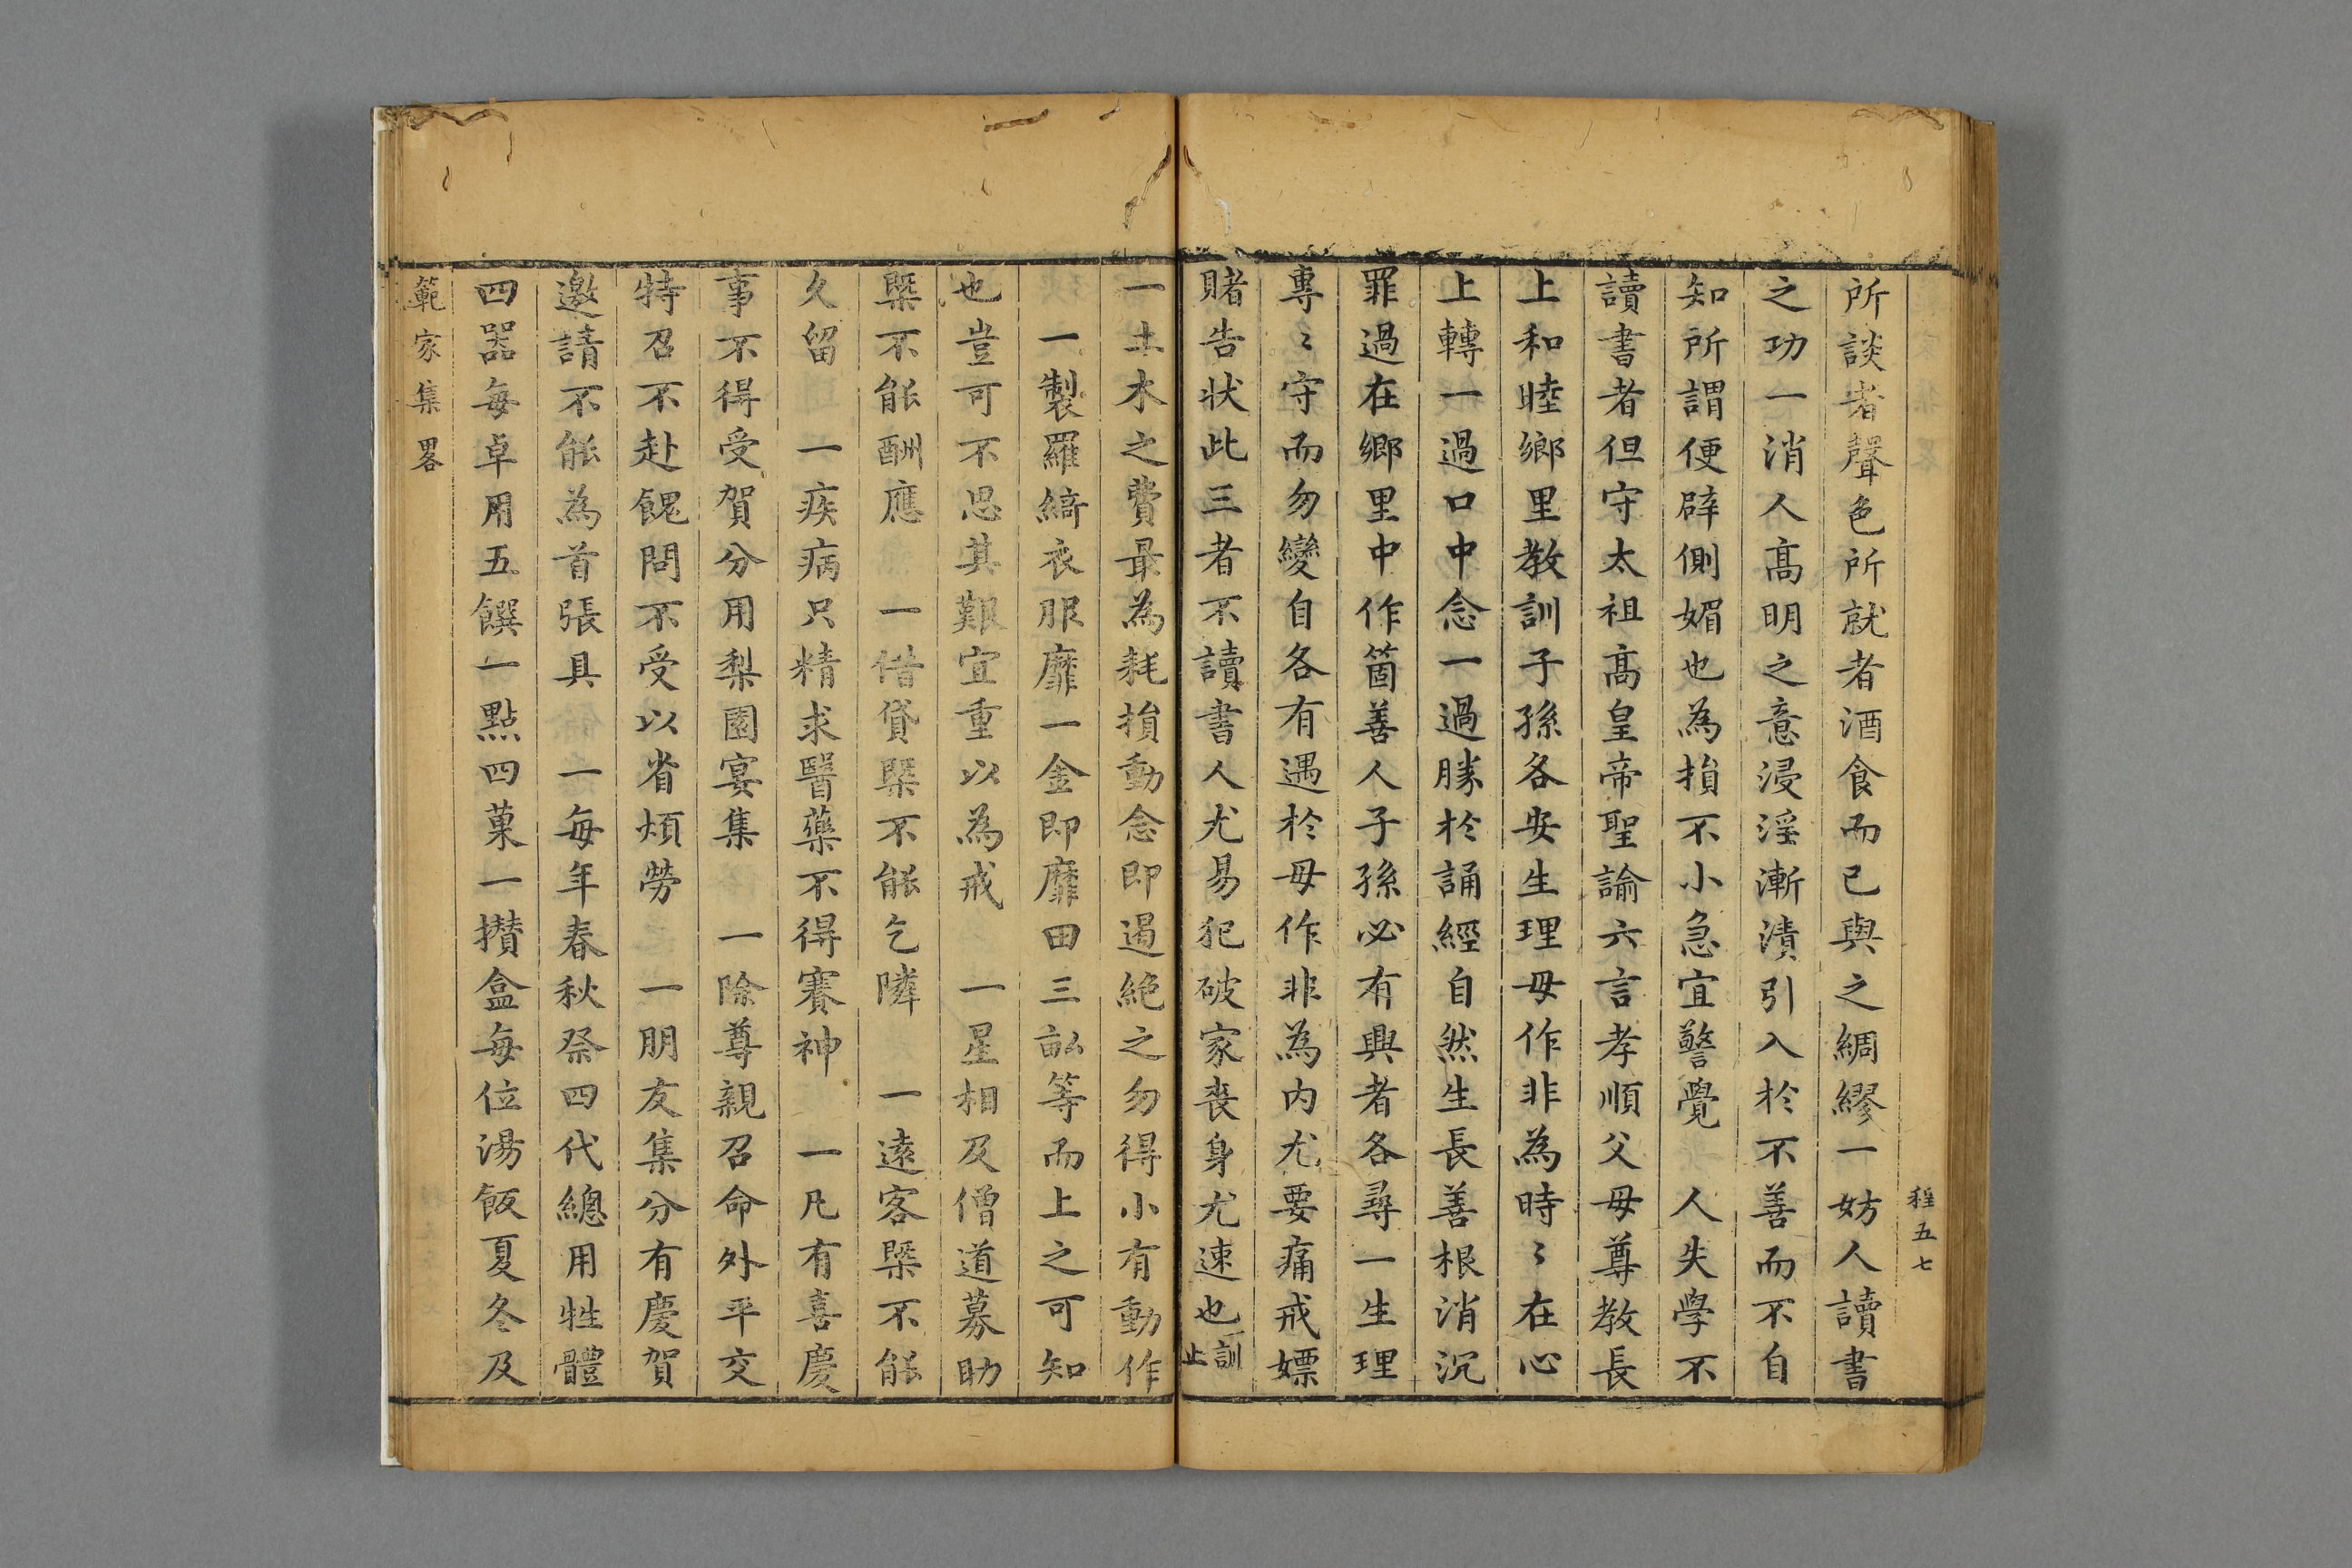 程五七
所談者聲色所就者酒食而已與之綢繆一妨人讀書
之功一消人髙明之意浸淫漸漬引入於不善而不自
知所謂便辟側媚也為損不小急宜警覺 人失學不
讀書者但守太祖髙皇帝聖諭六言孝順父母尊教長
上和睦鄉里教訓子孫各安生理毋作非為時〻在心
上轉一過口中念一過勝於誦經自然生長善根消沉
罪過在鄉里中作箇善人子孫必有興者各尋一生理
專〻守而勿變自各有遇於毋作非為内尤要痛戒嫖
賭告状此三者不讀書人尤易犯破家喪身尤速也訓止
一土木之費最為耗損動念即遏絶之勿得小有動作
一製羅綺衣服靡一金即靡田三畝等而上之可知
也豈可不思其艱宜重以為戒 一星相及僧道募助
槩不能酬應 一借貸槩不能乞隣 一遠客槩不能
久留 一疾病只精求醫藥不得賽神 一凡有喜慶
事不得受賀分用梨園宴集 一除尊親召命外平交
特召不赴餽問不受以省煩勞 一朋友集分有慶賀
邀請不能為首張具 一每年春秋祭四代總用牲體
四器每卓用五饌一點四菓一攢盒每位湯飯夏冬及
範家集畧